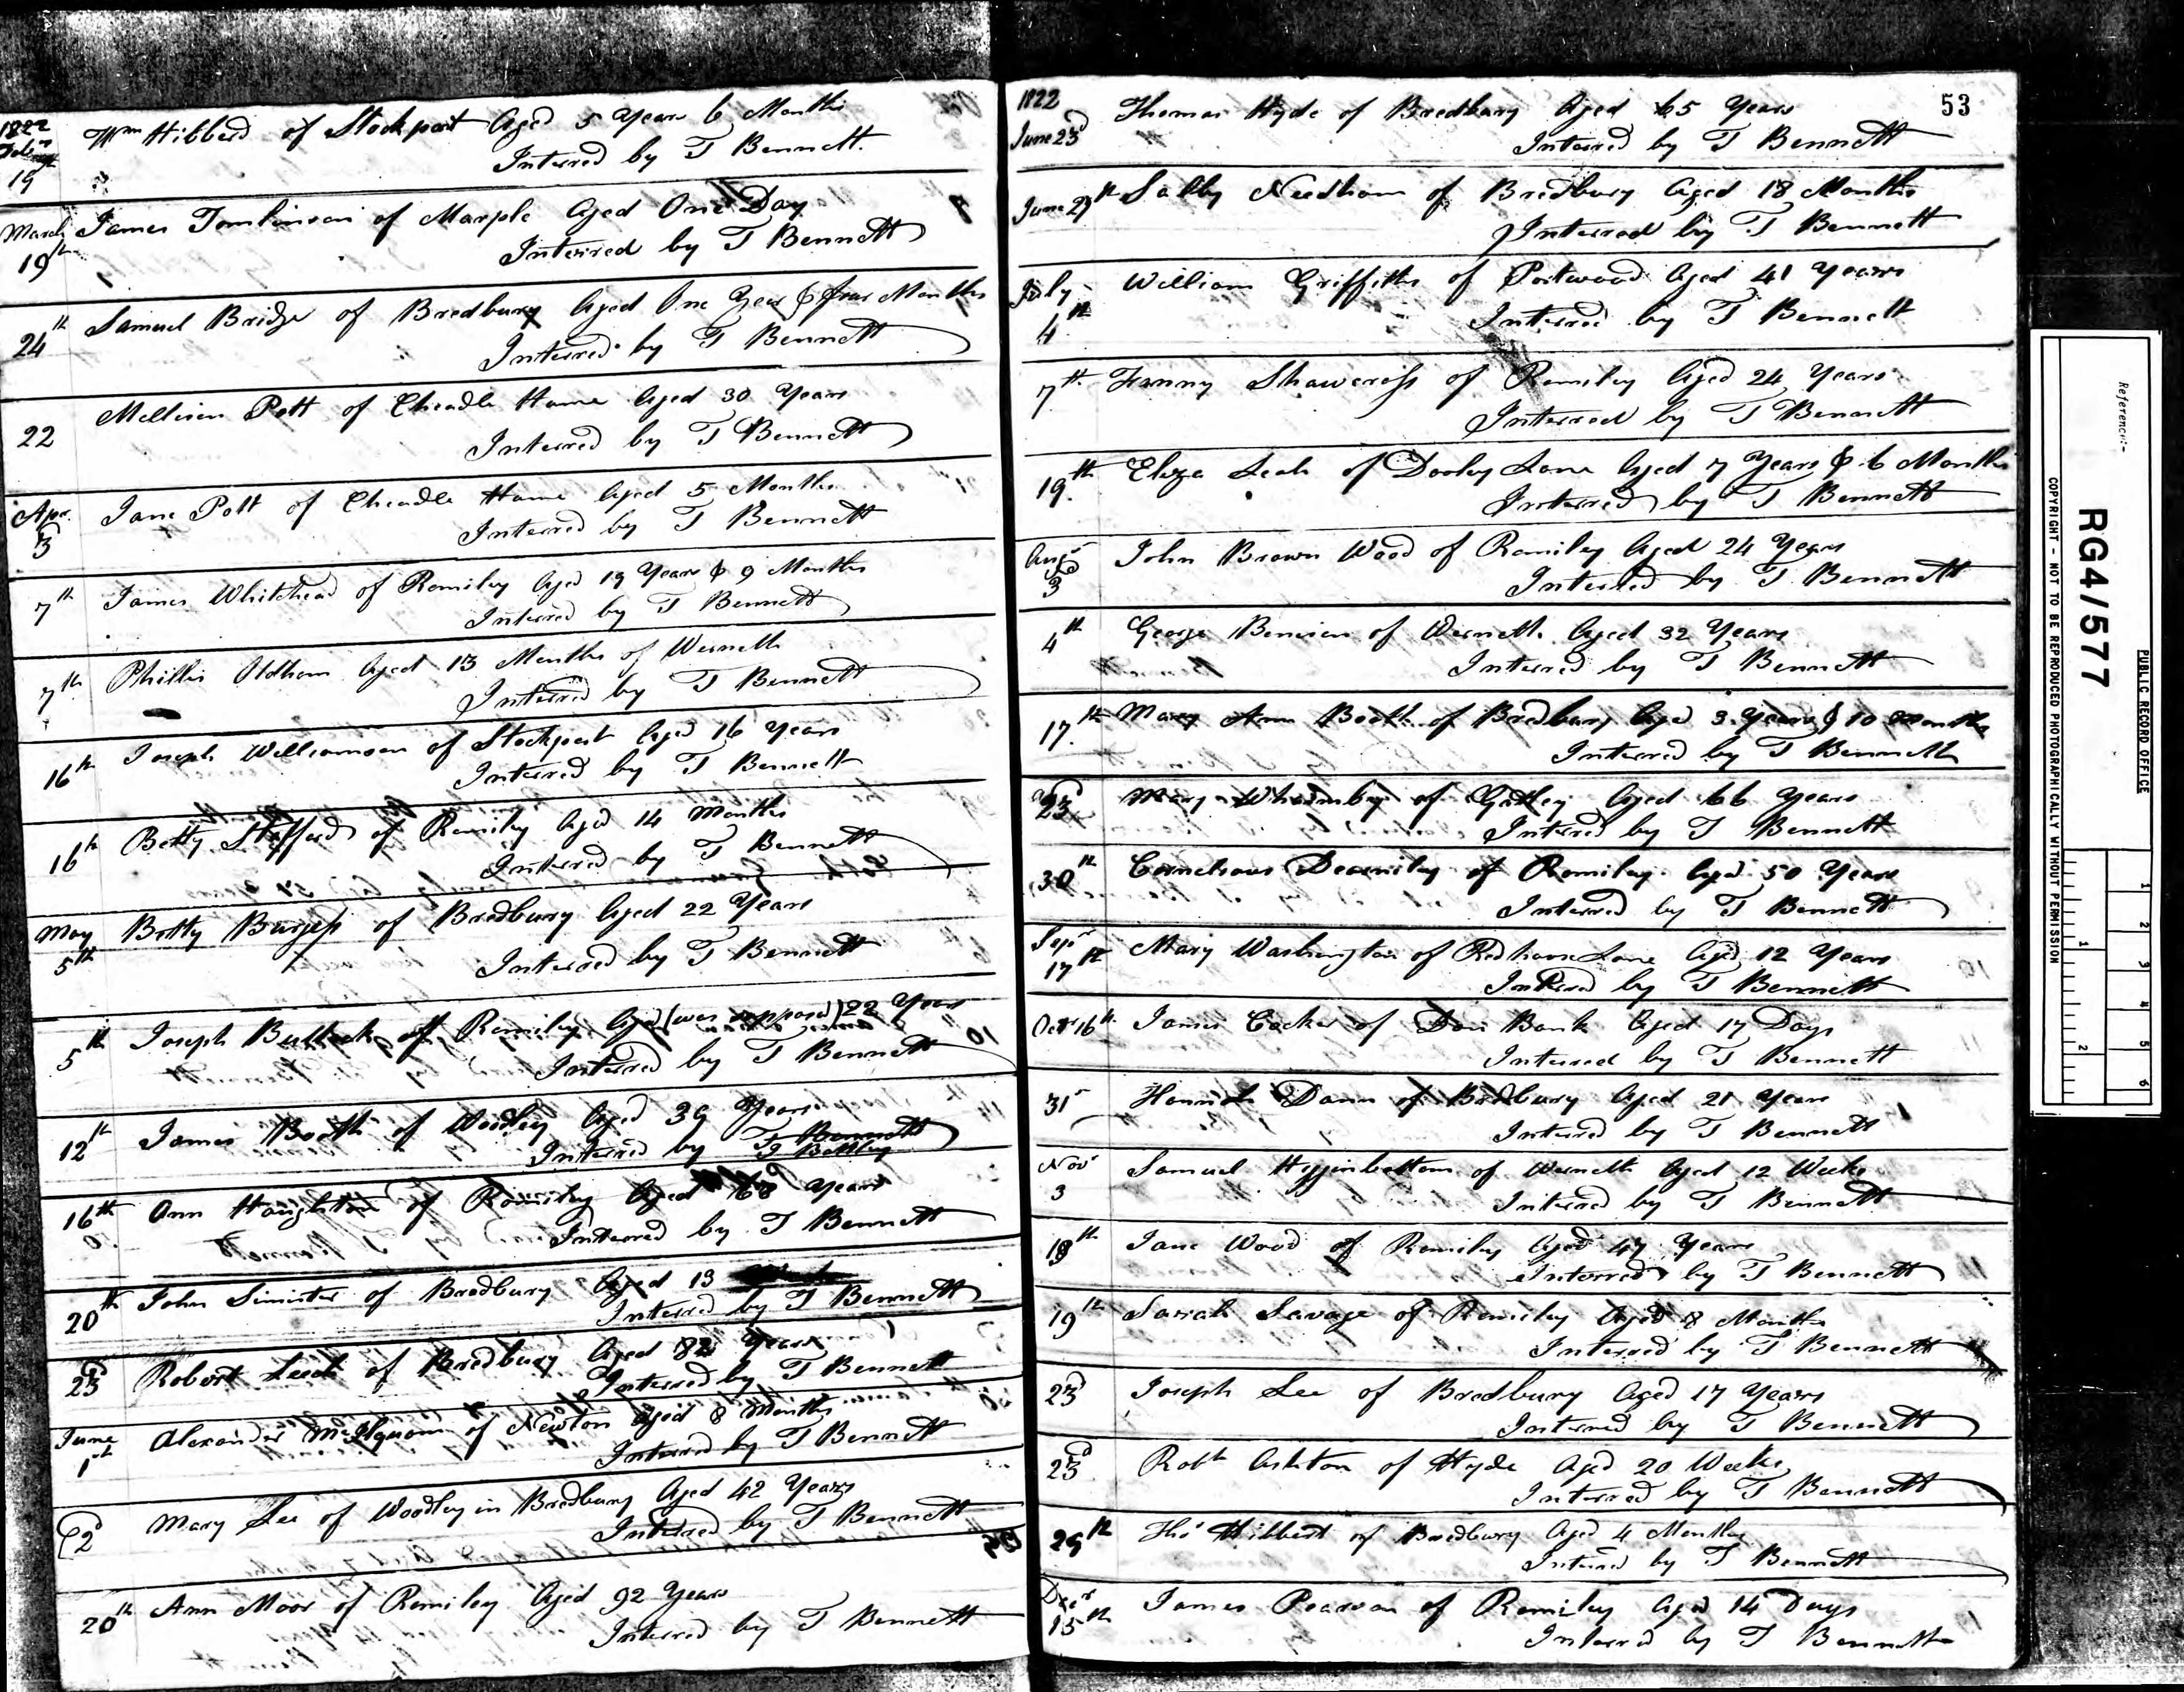 1822
Feby
19
Wm Hibberd of Stockport Aged 5 Years 6 Months
Interred by T Bennett.
March
19th
James Tomlinson of Marple Aged One Day
Interred by T Bennett
24th
Samuel Bridge of Bredbury Aged One Year & four Months
Interred by T Bennett
22
Pott of Cheadle Hume Aged 30 Years
Interred by T Bennett
Apr.
3d
Jane Pott of Cheadle Hume Aged 5 Months
Interred by T Bennett
7th
James Whitehead of Romiley Aged 19 Years & 9 Months
Interred by T Bennett
7th
Phillis Oldham Aged 13 Months of Werneth
Interred by T Bennett
16th
Joseph Williamson of Stockport Aged 16 Years
Interred by T Bennett
16th
Betty Stafford of Romiley Aged 14 Months
Interred by T Bennett
May
5th
Betty Burgess of Bredbury Aged 22 Years
Interred by T Bennett
5th
Joseph Bullock of Romiley Aged (was supposed) 22 Years
Interred by T Bennett
12th
James Booth of Woodley Aged 39 Years
Bennett
Interred by T
16th
Ann Houghton of Romiley Aged 68 Years
Interred by T Bennett
20th
John Simister of Bredbury Aged 13
Interred by T Bennett
23d
Robert Leech of Bredbury Aged 82 Years
Interred by T Bennett
June
1st
Alexander of Newton Aged 8 Months
Interred by T Bennett
2d
Mary Lee of Woodley in Bredbury Aged 42 Years
Interred by T Bennett
20th
Ann Moor of Romiley Aged 92 Years
Interred by T Bennett
53
1822
June 23d
Thomas Hyde of Bredbury Aged 65 Years
Interred by T Bennett
June 27th
Sally Needham of Bredbury Aged 18 Months
Interred by T Bennett
July
4th
William Griffiths of Portwood Aged 41 Years
Interred by T Bennett
7th
Fanny Shawcross of Romiley Aged 24 Years
Interred by T Bennett
19th
Eliza Leah of Dooley Lane Aged 7 Years & 6 Months
Interred by T Bennett
Augst
3d
John Brown Wood of Romiley Aged 24 Years
Interred by T Bennett
4th
George Benison of Werneth Aged 32 Years
Interred by T Bennett
17th
Mary Ann Booth of Bredbury Aged 3 Years & 10 Months
Interred by T Bennett
23d
Mary of Gatley Aged 66 Years
Interred by T Bennett
30th
of Romiley Aged 50 Years
Interred by T Bennett
Sepr
17th
Mary Washington of Redhouse Lane Aged 12 Years
Interred by T Bennett
Octr 16th
James Cocker of Dan Bank Aged 17 Days
Interred by T Bennett
31st
Hannah Dann of Bredbury Aged 21 Years
Interred by T Bennett
Novr
3
Samuel Higginbottom of Werneth Aged 12 Weeks
Interred by T Bennett
18th
Jane Wood of Romiley Aged 47 Years
Interred by T Bennett
19th
Sarah Savage of Romiley Aged 8 Months
Interred by T Bennett
23d
Joseph Lee of Bredbury Aged 17 Years
Interred by T Bennett
23d
Robt Ashton of Hyde Aged 20 Weeks
Interred by T Bennett
29th
Thos Hibbert of Bredbury Aged 4 Months
Interred by T Bennett
Decr
15th
James Pearson of Romiley Aged 14 Days
Interred by T Bennett
PUBLIC RECORD OFFICE
1
2
3
4
5
6
1
2
Reference:-
RG4/577
COPYRIGHT - NOT TO BE REPRODUCED PHOTOGRAPHICALLY WITHOUT PERMISSION